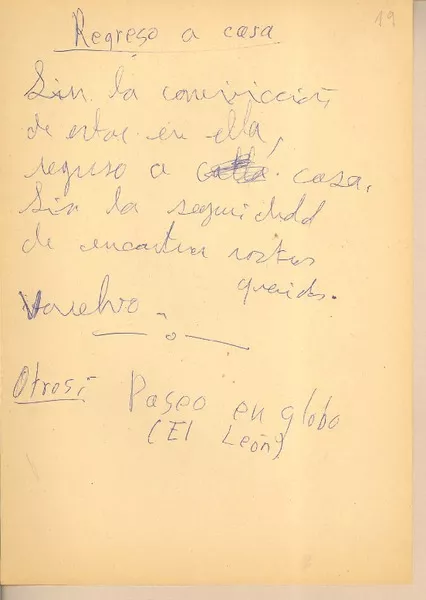 19
Regreso a casa
Sin la convicción
de estar en ella,
regreso a casa.
Sin la seguridad
de encontrar rostros
queridos.
Vuelvo.
Otros:
Paseo en globo
(El León)